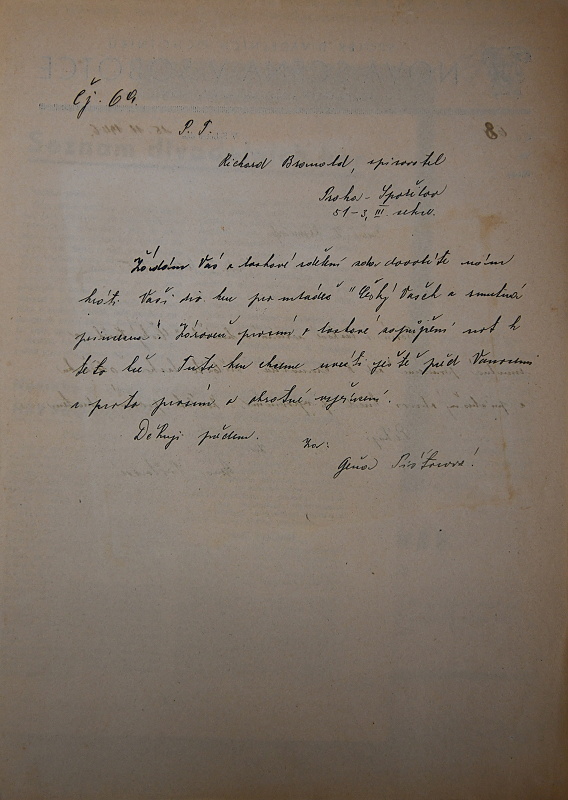 čj. 6a.
68
P. T.
Richard Branald, spisovatel
Praha - Spořilov
51-3, III. sekc.
Žádám Vás o laskavé sdělení zda dovolíte nám
hráti Vaši div. hru pro mládež "Český Vašek a smutná
princezna". Zároveň prosím o laskavé zapůjčení not k
této hře. Tuto hru chceme uvésti ještě před Vánocemi
a proto prosím o obratné vyřízení.
Děkuji předem.
Za:
Geňa